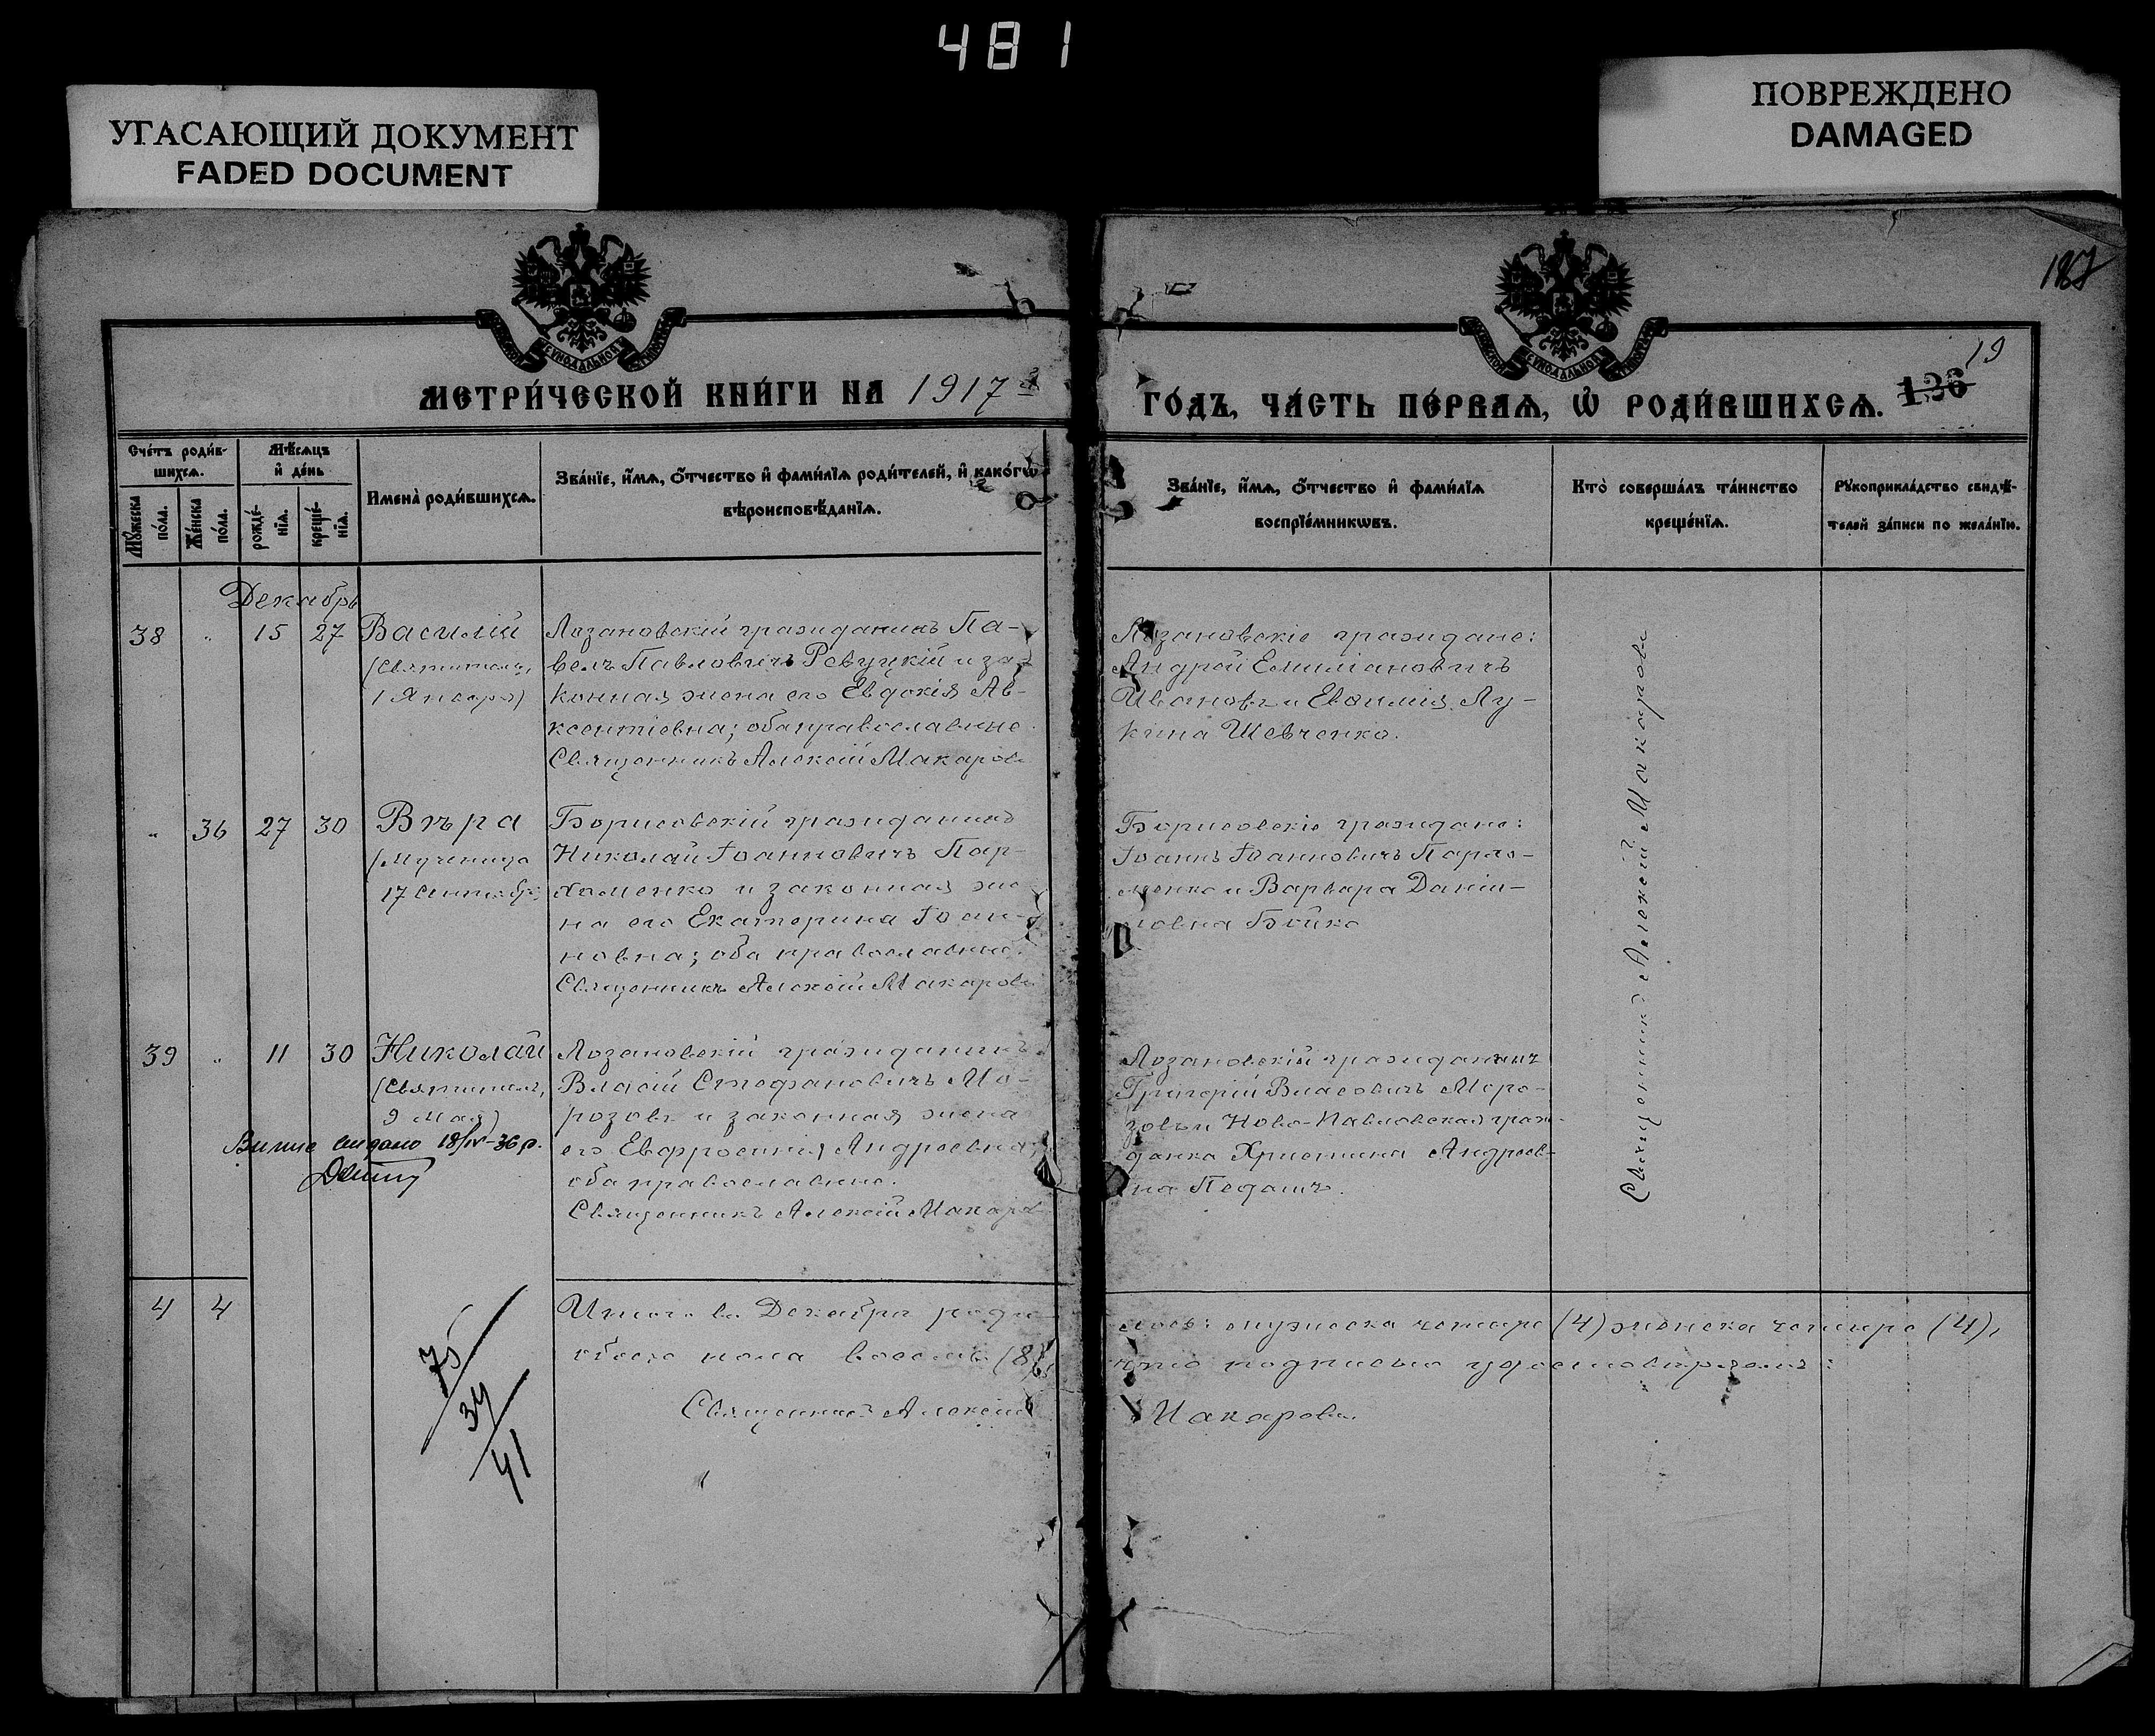 481
УГАСАЮЩИЙ ДОКУМЕНТ
FADED DOCUMENT
ПОВРЕЖДЕНО
DAMAGED
187
19
МЕТРИ́ЧЕСКОЙ КНИ́ГИ НА 1917 й
ГО́ДЪ, ЧА́СТЬ ПЕ́РВАѦ, Ѡ҆ РОДИ́ВШИХСѦ. 136
Сче́тъ роди́в-
шихсѧ.
Мѣ́сѧцъ
и҆ де́нь
Мꙋ́жеска
по́ла.
Же́нска
по́ла.
рожде́-
нїѧ.
креще́-
нїѧ.
Имена̀ роди́вшихсѧ.
Зва́нїе, и҆́мѧ, ѻ҆́тчество и҆ фами́лїѧ роди́телей, и҆ како́гѡ
вѣроисповѣ́данїѧ.
Зва́нїе, и҆́мѧ, ѻ҆́тчество и҆ фами́лїѧ
воспрїе́мникѡвъ.
Кто̀ соверша́лъ та́инство
креще́нїѧ.
Рꙋкоприкла́дство свидѣ́-
телей за́писи по жела́нїю.
Декабрь
38 " 15 27 Василій
(Святитель,
1 Января)
Лозановскій гражданинъ Па-
велъ Павловичъ Ревуцкій и за-
конная жена его Евдокія Ав-
ксентіевна; оба православные.
Священникъ Алексій Макаровъ
Лозановскіе граждане:
Андрей Емиліановичъ
Ивановъ и Евѳимія Лу-
кина Шевченко.
" 36 27 30 Вѣра
(Мученица
17 Сентября)
Борисовскій гражданинъ
Николай Іоанновичъ Пар-
хоменко и законная же-
на его Екатерина Іоан-
новна; оба православные.
Священникъ Алексій Макаровъ
Борисовскіе граждане:
Іоаннъ Іоанновичъ Пархо-
менко и Варвара Даніи-
ловна Бойко
39 " 11 30 Николай
(Святитель,
9 Мая)
Лозановскій гражданинъ
Власій Стефановичъ Мо-
розовъ и законная жена
его Евфросинія Андреевна;
оба православные.
Священникъ Алексій Макаровъ
Лозановскій гражданинъ
Григорій Власовичъ Моро-
зовъ и Ново-Павловская граж-
данка Христина Андреев-
на Педашъ.
видано 18/IV-36 р.
Священникъ Алексій Макаровъ
4 4
Итого въ Декабрѣ роди-
лось: мужеска четыре (4) женска четыре (4),
обоего пола восемь (8),
что подписью удостовѣряемъ:
Священникъ Алексій Макаровъ.
75
34
41